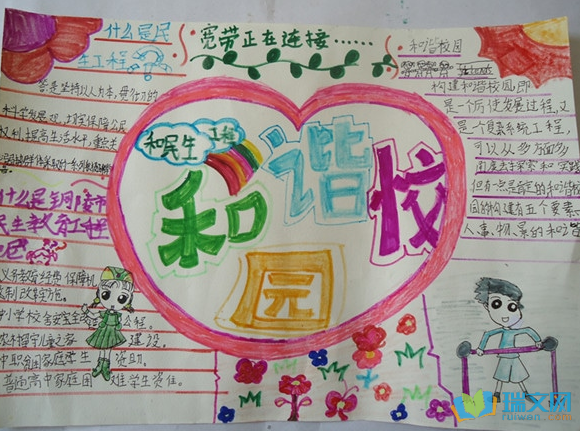 什么是民
生工程
宽带正在连接……
和谐校园
答:是坚持以人为本,
构建和谐校园,即
是一个历史发展过程,又
是一个复杂系统工程,
可以从多方面多
角度去探索和实践
但有一点是肯定的和谐校
园的构建有五个要素
人、事、物、景的和谐
和民生工程
和谐校
园
什么是铜陵市
民生教育工程
义务教育经费保障机
制改革实施。
中小学校舍安全
工程。
农村留守儿童之家
建设。
中职贫困家庭学生
资助。
普通高中家庭困
难学生资住。
瑞文网
ruiwen.com